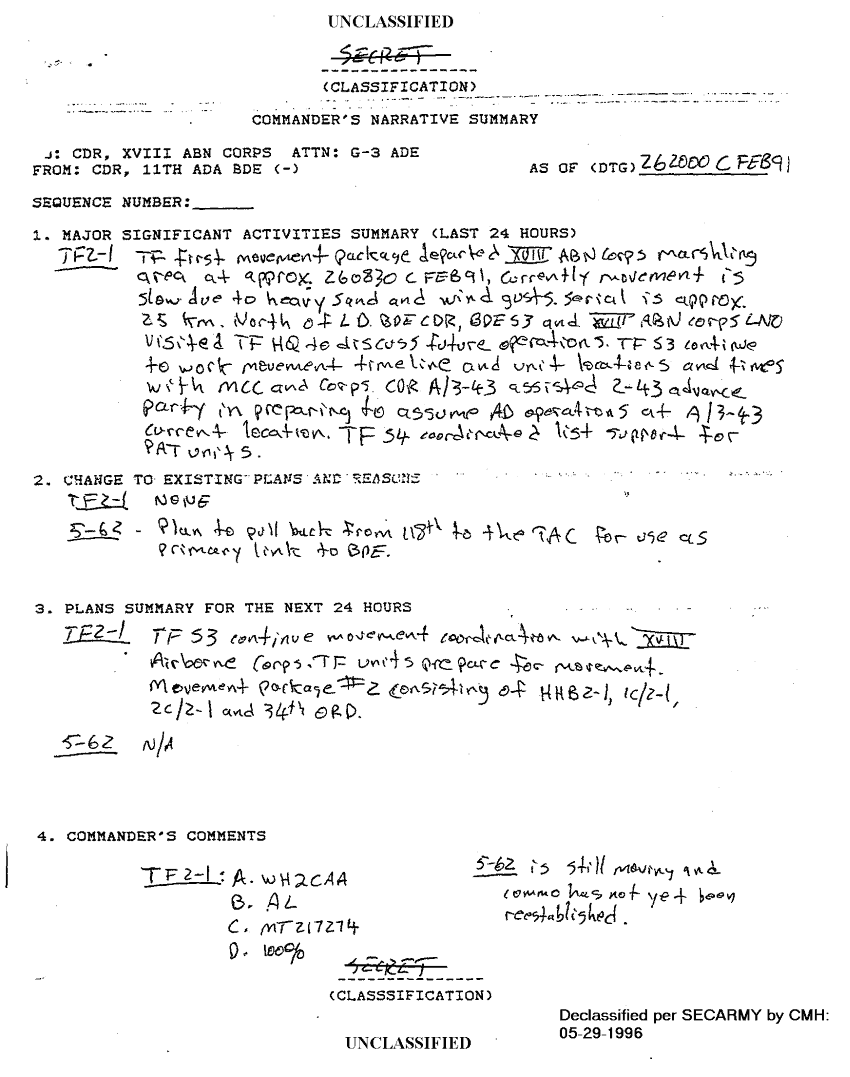 UNCLASSIFIED
SECRET
(CLASSIFICATION)
COMMANDER'S NARRATIVE SUMMARY
: CDR, XVIII ABN CORPS ATTN: G-3 ADE
FROM: CDR, 11TH ADA BDE (-) AS OF (DTG) 262000 C FEB91
SEQUENCE NUMBER:______
1. MAJOR SIGNIFICANT ACTIVITIES SUMMARY (LAST 24 HOURS)
TF2-1 TF first movement package departed XVIII ABN Corps marshling
area at approx. 260830 C FEB91, Currently movement is
slow due to heavy sand and wind gusts. Serial is approx.
25 km. North of LD. BDE CDR, BDE S3 and XVIII ABN corps LNO
visited TF HQ to discuss future operations. TF S3 continue
to work movement timeline and unit locations and times
with MCC and Corps. CDR A/3-43 assisted 2-43 advance
party in preparing to assume AD operations at A/3-43
current location. TF S4 coordinated list support for
PAT units.
2. CHANGE TO EXISTING PLANS AND REASONS
TF2-1 NONE
5-62 - Plan to pull back from 118th to the TAC for use as
primary link to BDE.
3. PLANS SUMMARY FOR THE NEXT 24 HOURS
TF2-1 TF S3 continue movement coordination with XVIII
Airborne Corps. TF units prepare for movement.
Movement Package #2 consisting of HHB2-1, 1C/2-1,
2C/2-1 and 34th ORD.
5-62 N/A
4. COMMANDER'S COMMENTS
TF2-1: A. WH2CAA
B. AL
C. MT217274
D. 100%
5-62 is still moving and
commo has not yet been
reestablished.
SECRET
(CLASSSIFICATION)
Declassified per SECARMY by CMH:
05-29-1996
UNCLASSIFIED